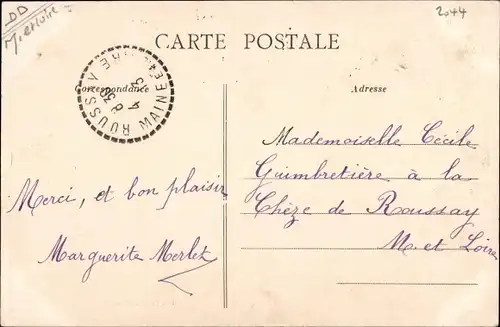 DD
M. et Loire
2044
CARTE POSTALE
Correspondance
Adresse
ROUSSAY MAINE ET LOIRE
8 30
4
3
Merci, et bon plaisir
Marguerite Merlet
Mademoiselle Cécile
Guimbretière à la
Chèze de Roussay
M. et Loire